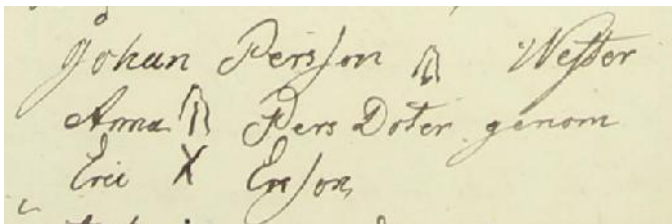 Johan Persson Wester
Anna Pers Doter genom
Eric X Erson